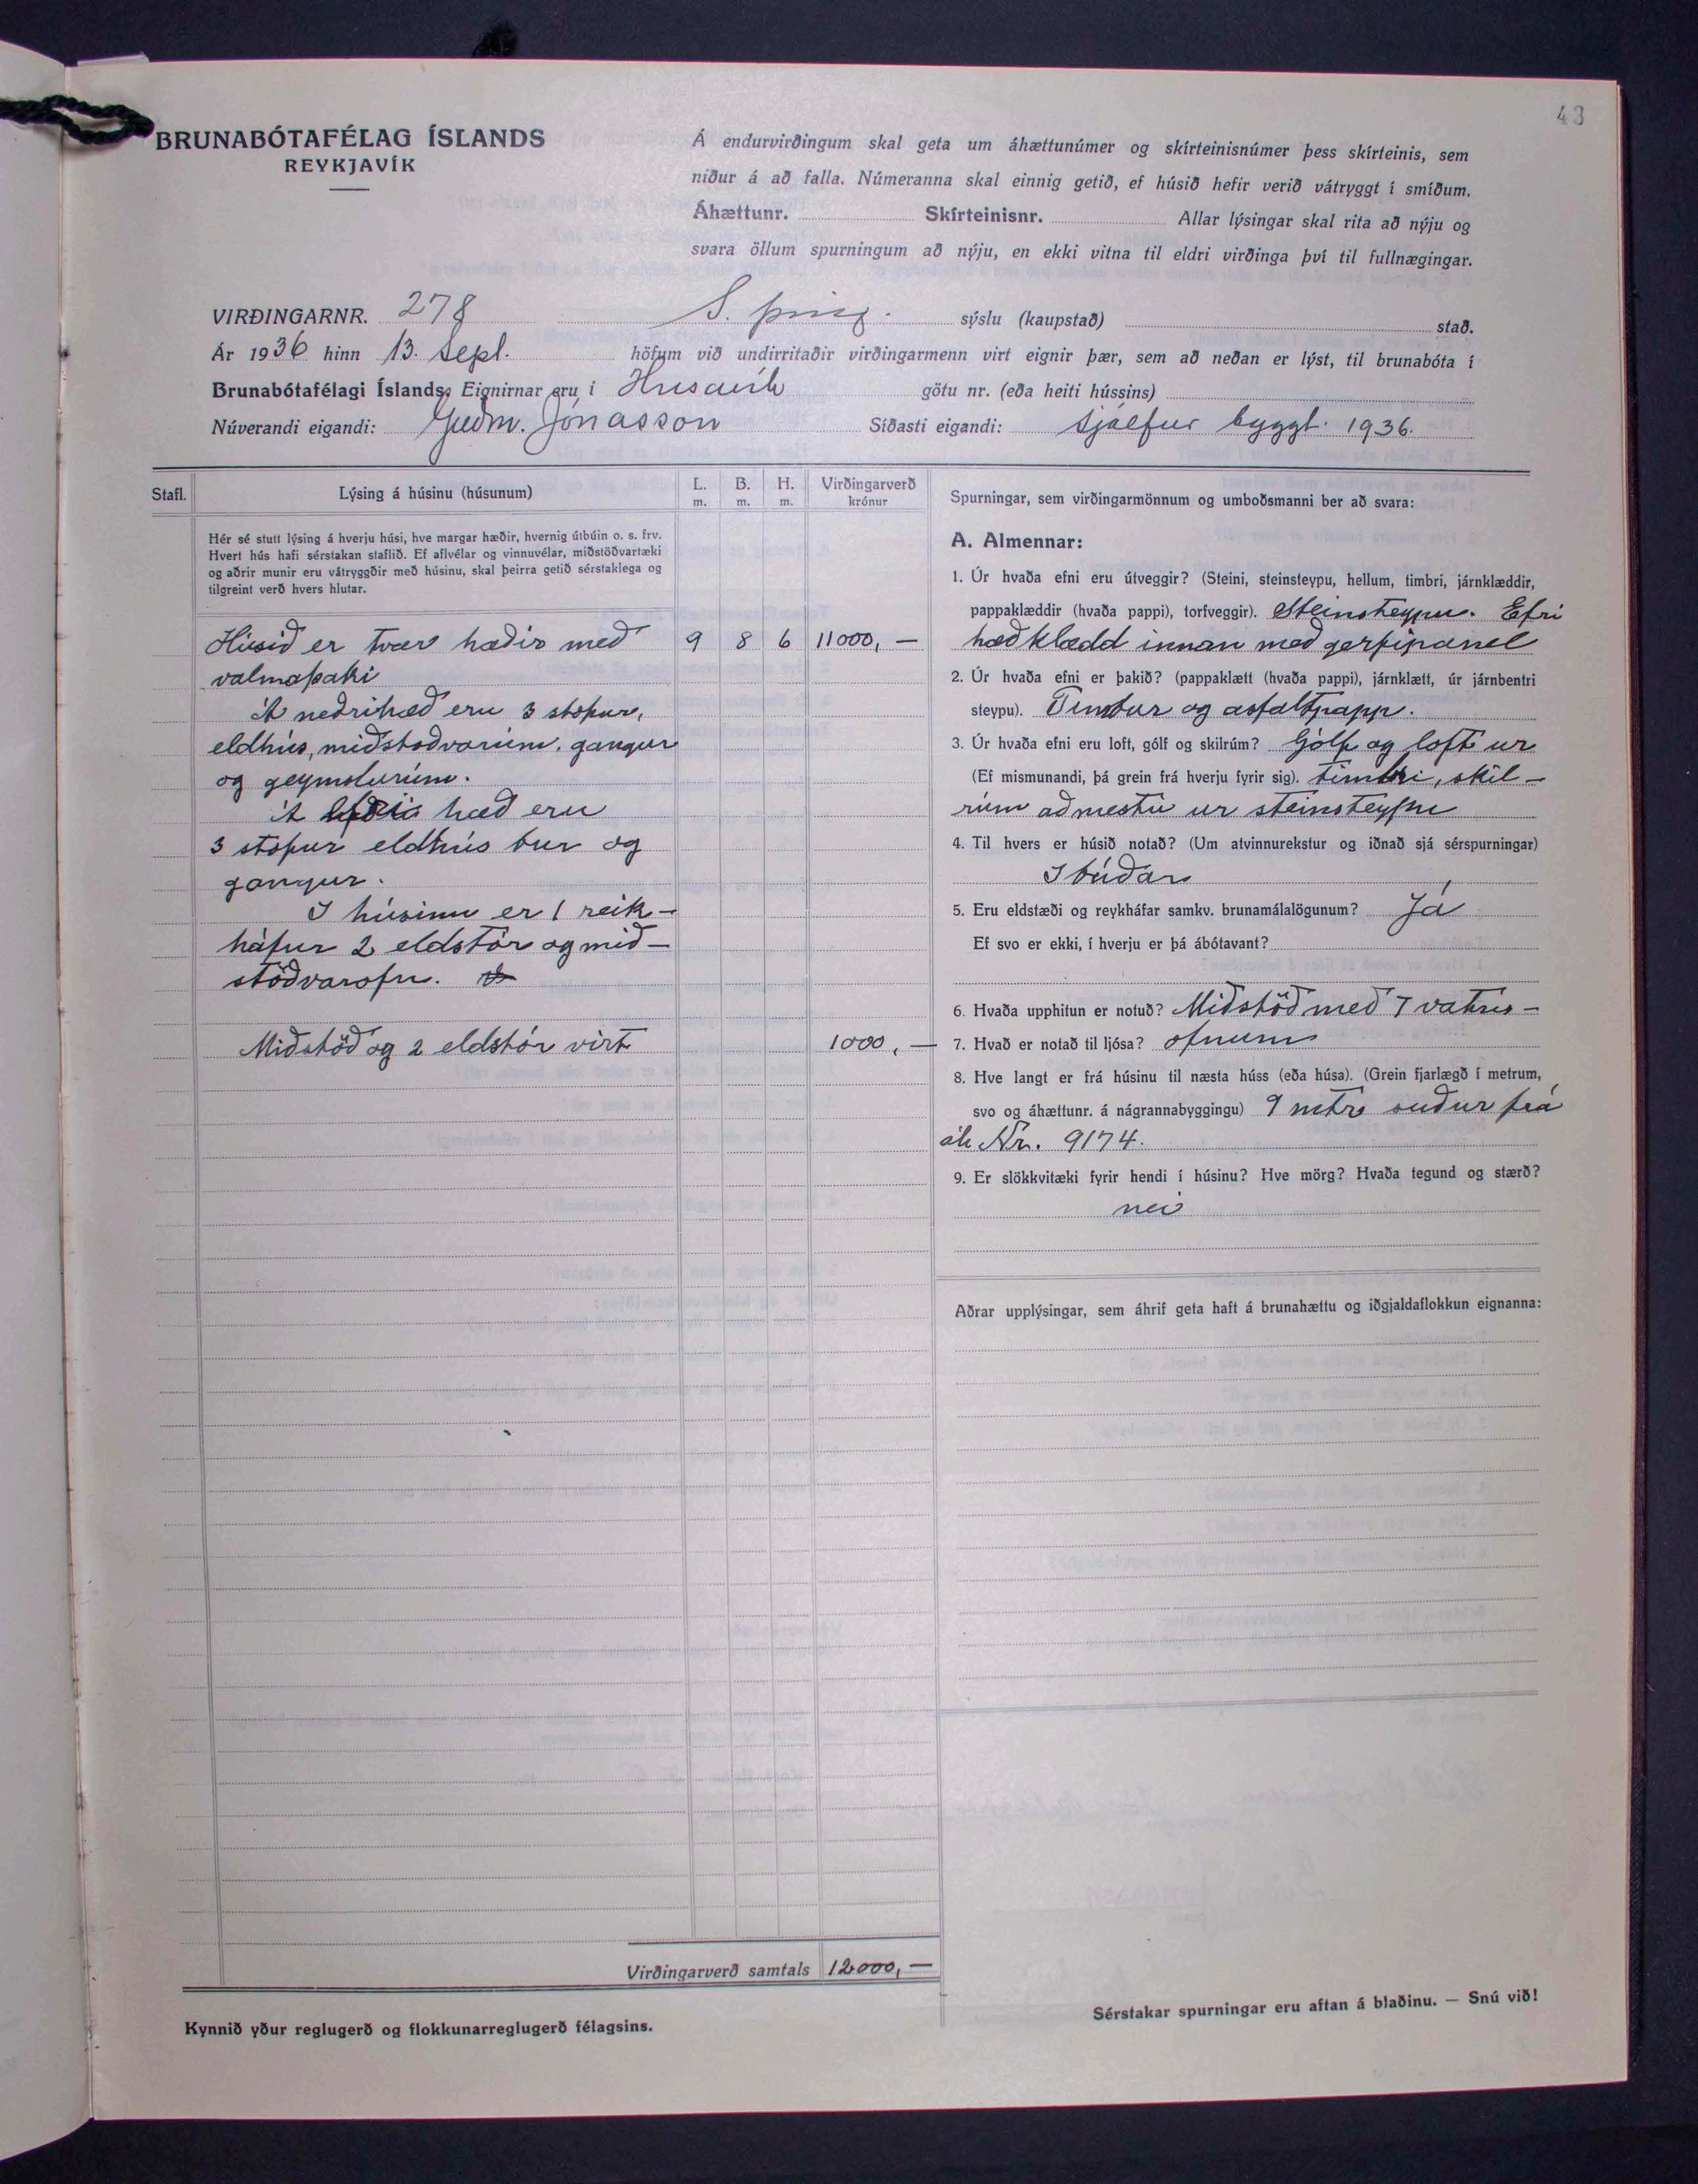 43
BRUNABÓTAFÉLAG ÍSLANDS
REYKJAVÍK
Á endurvirðingum skal geta um áhættunúmer og skírteinisnúmer þess skírteinis, sem
niður á að falla. Númeranna skal einnig getið, ef húsið hefir verið vátryggt í smíðum.
Áhættunr. Skírteinisnr. Allar lýsingar skal rita að nýju og
svara öllum spurningum að nýju, en ekki vitna til eldri virðinga því til fullnægingar.
VIRÐINGARNR. 278 S. þing. sýslu (kaupstað) stað.
Ár 1936 hinn 13. Sept. höfum við undirritaðir virðingarmenn virt eignir þær, sem að neðan er lýst, til brunabóta í
Brunabótafélagi Íslands. Eignirnar eru í Husavík götu nr. (eða heiti hússins)
Núverandi eigandi: Guðm. Jónasson Síðasti eigandi: sjálfur byggt. 1936.
Stafl. Lýsing á húsinu (húsunum) L. m. B. m. H. m. Virðingarverð krónur
Hér sé stutt lýsing á hverju húsi, hve margar hæðir, hvernig útbúin o. s. frv.
Hvert hús hafi sérstakan staflið. Ef aflvélar og vinnuvélar, miðstöðvartæki
og aðrir munir eru vátryggðir með húsinu, skal þeirra getið sérstaklega og
tilgreint verð hvers hlutar.
Húsið er tvær hæðir með 9 8 6 11000,—
valmaþaki
Á neðrihæð eru 3 stofur,
eldhús, miðstoðvarúm, gangur
og geymslurúm.
Á hæð eru
3 stofur eldhús bur og
gangur.
I húsinu er 1 reik-
háfur 2 eldstór og mið-
stöðvarofn.
Miðstöð og 2 eldstór virt 1000,—
Virðingarverð samtals 12000,—
Kynnið yður reglugerð og flokkunarreglugerð félagsins.
Spurningar, sem virðingarmönnum og umboðsmanni ber að svara:
A. Almennar:
1. Úr hvaða efni eru útveggir? (Steini, steinsteypu, hellum, timbri, járnklæddir,
pappaklæddir (hvaða pappi), torfveggir). Steinsteypu. Efri
hæð klædd innan með gerfipanel
2. Úr hvaða efni er þakið? (pappaklætt (hvaða pappi), járnklætt, úr járnbentri
steypu). Timbur og asfaltpapp.
3. Úr hvaða efni eru loft, gólf og skilrúm? Gólf og loft ur
(Ef mismunandi, þá grein frá hverju fyrir sig). timbri, skil-
rúm aðmestu ur steinsteypu
4. Til hvers er húsið notað? (Um atvinnurekstur og iðnað sjá sérspurningar)
Ibúðar
5. Eru eldstæði og reykháfar samkv. brunamálalögunum? Já
Ef svo er ekki, í hverju er þá ábótavant?
6. Hvaða upphitun er notuð? Miðstöð með 7 vatns-
7. Hvað er notað til ljósa? ofnum
8. Hve langt er frá húsinu til næsta húss (eða húsa). (Grein fjarlægð í metrum,
svo og áhættunr. á nágrannabyggingu) 9 mtr suður frá
áh Nr. 9174.
9. Er slökkvitæki fyrir hendi í húsinu? Hve mörg? Hvaða tegund og stærð?
nei
Aðrar upplýsingar, sem áhrif geta haft á brunahættu og iðgjaldaflokkun eignanna:
Sérstakar spurningar eru aftan á blaðinu. — Snú við!